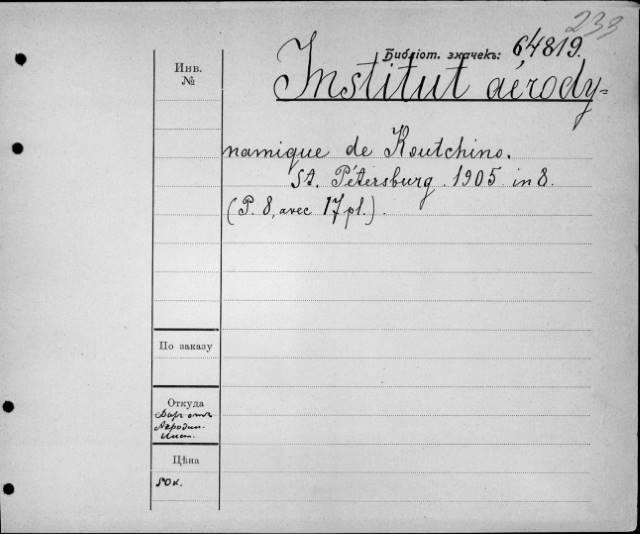 233
Библіот. значекъ: 64819.
Инв.
№
Institut aérody-
namique de Koutchino.
St. Pétersburg. 1905 in 8.
(P. 8, avec 17 pl.).
По заказу
Откуда
Даръ отъ
Аэродин.
Инст.
Цѣна
50 к.